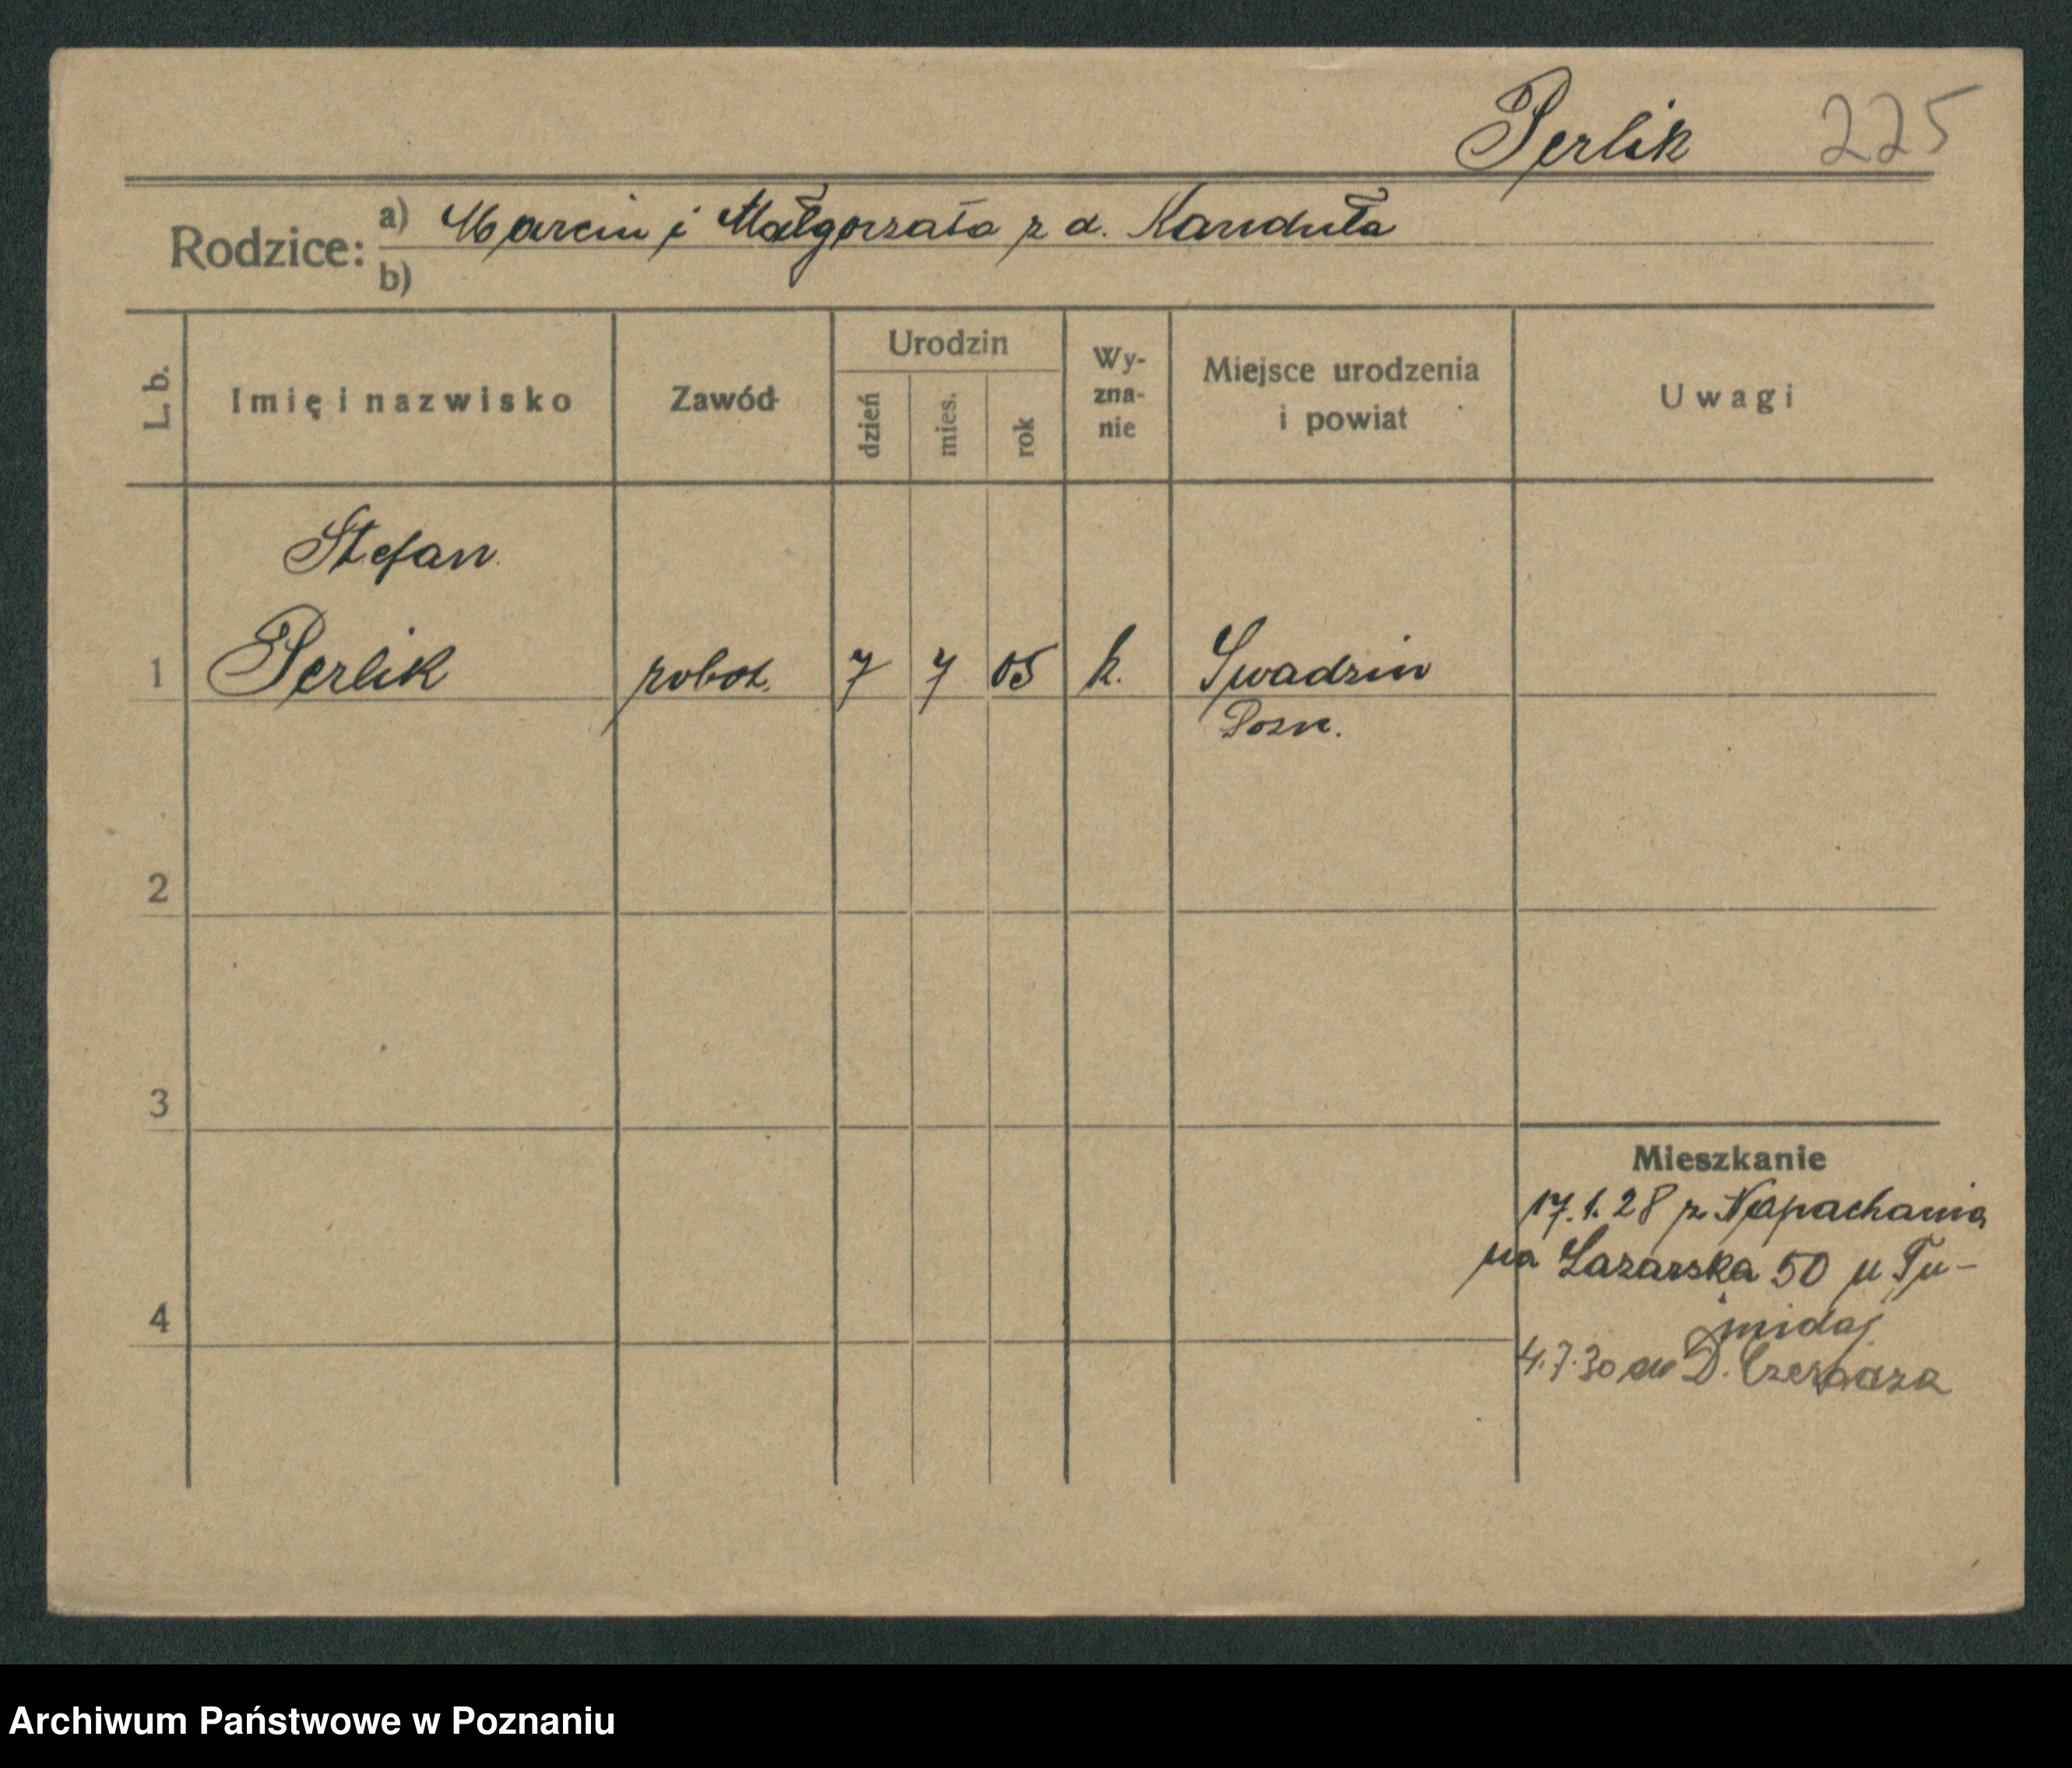 Perlik 225
Rodzice: a) Marcin i Małgorzata z d. Kanduła
b)
L. b. Imię i nazwisko Zawód Urodzin dzień mies. rok Wy-zna-nie Miejsce urodzenia i powiat Uwagi
Stefan
1 Perlik robot. 7 7 05 k. Swadzin
Pozn.
2
3
Mieszkanie
17.1.28 z Napachania
na Łazarska 50 u
4
4.7.30 do D.
Archiwum Państwowe w Poznaniu